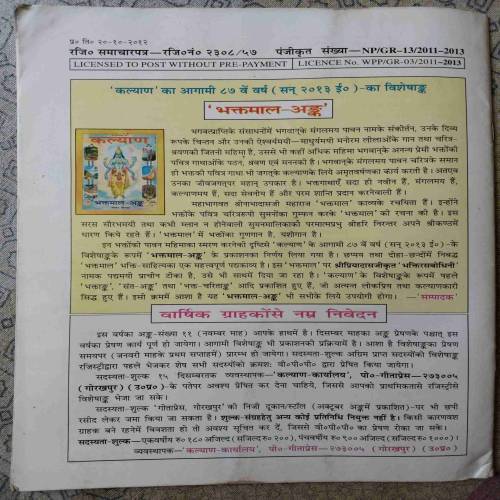 प्र० ति० २०-१०-२०१२
रजि० समाचारपत्र—रजि०नं० २३०८/५७ पंजीकृत संख्या—NP/GR-13/2011-2013
LICENSED TO POST WITHOUT PRE-PAYMENT | LICENCE No. WPP/GR-03/2011-2013
'कल्याण' का आगामी ८७ वें वर्ष (सन् २०१३ ई०)-का विशेषाङ्क
'भक्तमाल-अङ्क'
कल्याण
भक्तमाल-अङ्क
भगवत्प्राप्तिके संसाधनोंमें भगवान्‌के मंगलमय पावन नामके संकीर्तन, उनके दिव्य
रूपके चिन्तन और उनकी ऐश्वर्यमयी—माधुर्यमयी मनोरम लीलाओंके गान तथा चरित्र-
श्रवणकी जितनी महिमा है, उससे भी कहीं अधिक महिमा भगवान्‌के अनन्य प्रेमी भक्तोंकी
पवित्र गाथाओंके पठन, श्रवण एवं मननकी है। भगवान्‌के मंगलमय पावन चरित्रके समान
ही भक्तकी पवित्र गाथा भी जगत्‌के कल्याणके लिये अमृतवर्षणका कार्य करती है। अतएव
उनका जीवजगत्‌पर महान् उपकार है। भक्तगाथाएँ सदा ही नवीन हैं, मंगलमय हैं,
कल्याणमय हैं, सदा सेवनीय हैं और परम शान्ति प्रदान करनेवाली हैं।
महाभागवत श्रीनाभादासजी महाराज 'भक्तमाल' काव्यके रचयिता हैं। इन्होंने
भक्तोंके पवित्र चरित्ररूपी सुमनोंका गुम्फन करके 'भक्तमाल' की रचना की है। इस
सरस सौरभमयी तथा कभी म्लान न होनेवाली सुमनमालिकाको परमात्मप्रभु श्रीहरि निरन्तर अपने श्रीकण्ठमें
धारण किये रहते हैं। 'भक्तमाल' में भक्तोंका गुणगान है, यशोगान है।
इन भक्तोंकी पावन महिमाका स्मरण करनेकी दृष्टिसे 'कल्याण' के आगामी ८७ वें वर्ष (सन् २०१३ ई०)-के
विशेषाङ्कके रूपमें 'भक्तमाल-अङ्क' के प्रकाशनका निर्णय लिया गया है। छप्पय तथा दोहा-छन्दोंमें निबद्ध
'भक्तमाल' भक्ति-साहित्यका एक महत्त्वपूर्ण पद्यकाव्य है। इस 'भक्तमाल' पर श्रीप्रियादासजीकृत 'भक्तिरसबोधिनी'
नामक पद्यमयी प्राचीन टीका है, उसे भी साथमें दिया जा रहा है। 'कल्याण' के विशेषाङ्कके रूपमें पहले
'भक्ताङ्क', 'संत-अङ्क' तथा 'भक्त-चरिताङ्क' आदि प्रकाशित हुए हैं, जो अत्यन्त लोकप्रिय तथा कल्याणकारी
सिद्ध हुए हैं। इसी क्रममें आशा है यह 'भक्तमाल-अङ्क' भी सभीके लिये उपयोगी होगा। —'सम्पादक'
वार्षिक ग्राहकोंसे नम्र निवेदन
इस वर्षका अङ्क-संख्या ११ (नवम्बर माह) आपके हाथमें है। दिसम्बर माहका अङ्क प्रेषणके पश्चात् इस
वर्षका प्रेषण कार्य पूर्ण हो जायेगा। आगामी विशेषाङ्क भी प्रकाशनकी प्रक्रियामें है। आशा है विशेषाङ्कका प्रेषण
समयपर (जनवरी माहके प्रथम सप्ताहमें) प्रारम्भ हो जायेगा। सदस्यता-शुल्क अग्रिम प्राप्त सदस्योंको विशेषाङ्क
रजिस्ट्रीद्वारा पहले भेजकर शेष सभी सदस्योंको क्रमशः वी०पी०पी० द्वारा प्रेषित किया जायेगा।
सदस्यता-शुल्क १५ दिसम्बरतक व्यवस्थापक—'कल्याण-कार्यालय', पो०-गीताप्रेस—२७३००५
(गोरखपुर) (उ०प्र०)-के पतेपर अवश्य प्रेषित कर देना चाहिये, जिससे आपको प्राथमिकतासे रजिस्ट्रीसे
विशेषाङ्क भेजा जा सके।
सदस्यता-शुल्क 'गीताप्रेस, गोरखपुर'की निजी दूकान/स्टॉल (अक्टूबर अङ्कमें प्रकाशित)-पर भी छपी
रसीद लेकर जमा किया जा सकता है। शुल्क-संग्रहहेतु अन्य कोई प्रतिनिधि नियुक्त नहीं है। किसी कारणवश
ग्राहक बने रहनेमें विवशता हो तो अवश्य सूचित कर दें, जिससे वी०पी०पी० का प्रेषण रोका जा सके।
सदस्यता-शुल्क—एकवर्षीय रु०१८० अजिल्द (सजिल्द रु० २००), पंचवर्षीय रु० ९०० अजिल्द (सजिल्द रु० १०००)।
व्यवस्थापक—'कल्याण-कार्यालय', पो०-गीताप्रेस—२७३००५ (गोरखपुर) (उ०प्र०)